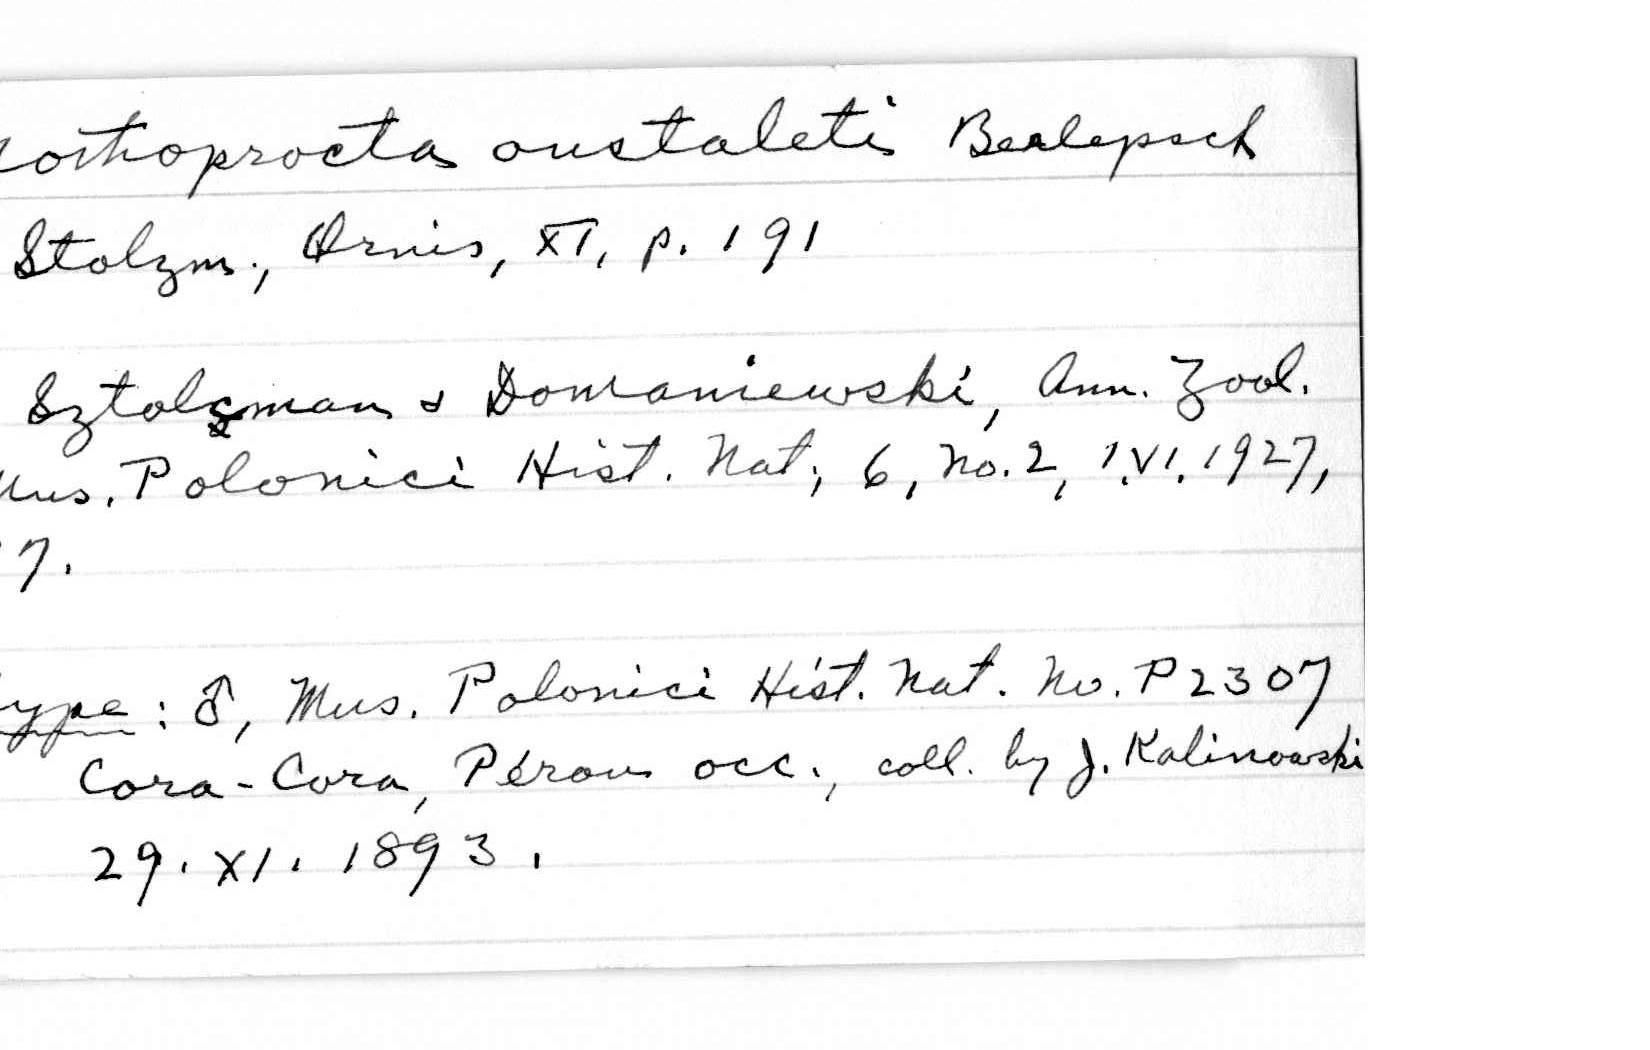 othoprocta oustaleti Berlepsch
Stolzm., Ornis, XI, p. 191
Sztolcman & Domaniewski, Ann. Zool.
Mus. Polonici Hist. Nat., 6, no. 2, 1.VI.1927,
7.
ype: ♂, Mus. Polonici Hist. Nat. No. P2307
Cora-Cora, Pérou occ., coll. by J. Kalinowski
29.XI.1893.